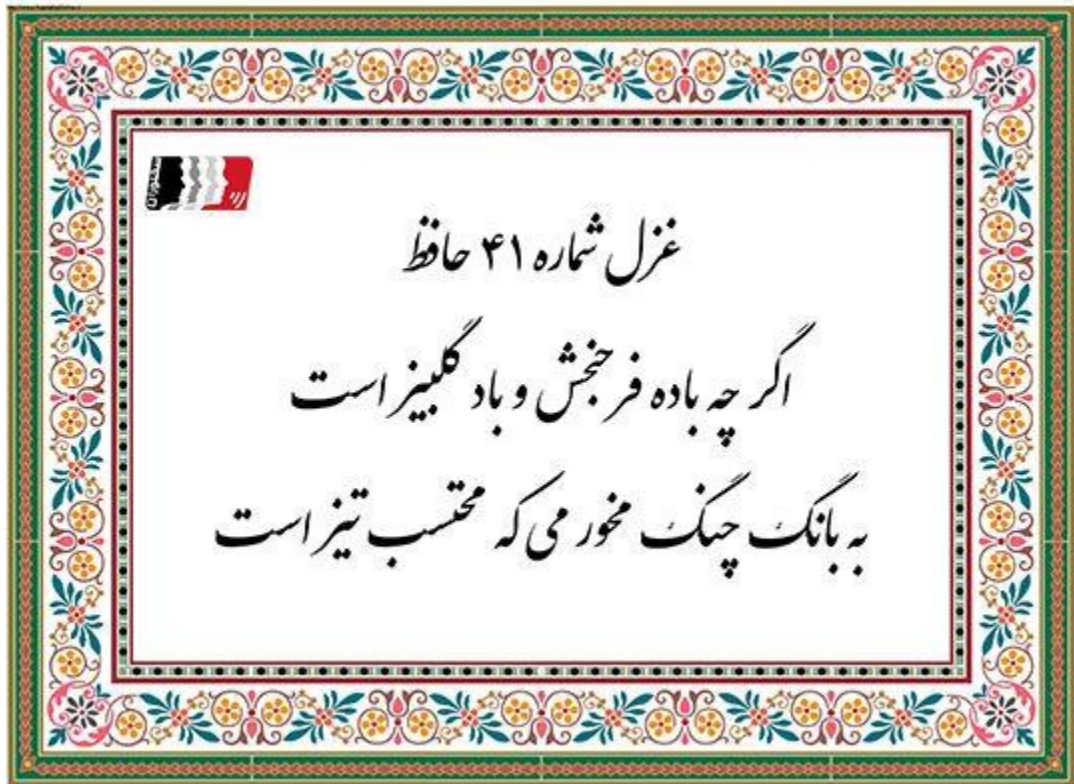 غزل شماره ۴۱ حافظ
اگر چه باده فرحبخش و باد گلبیز است
به بانگ چنگ مخور می که محتسب تیز است